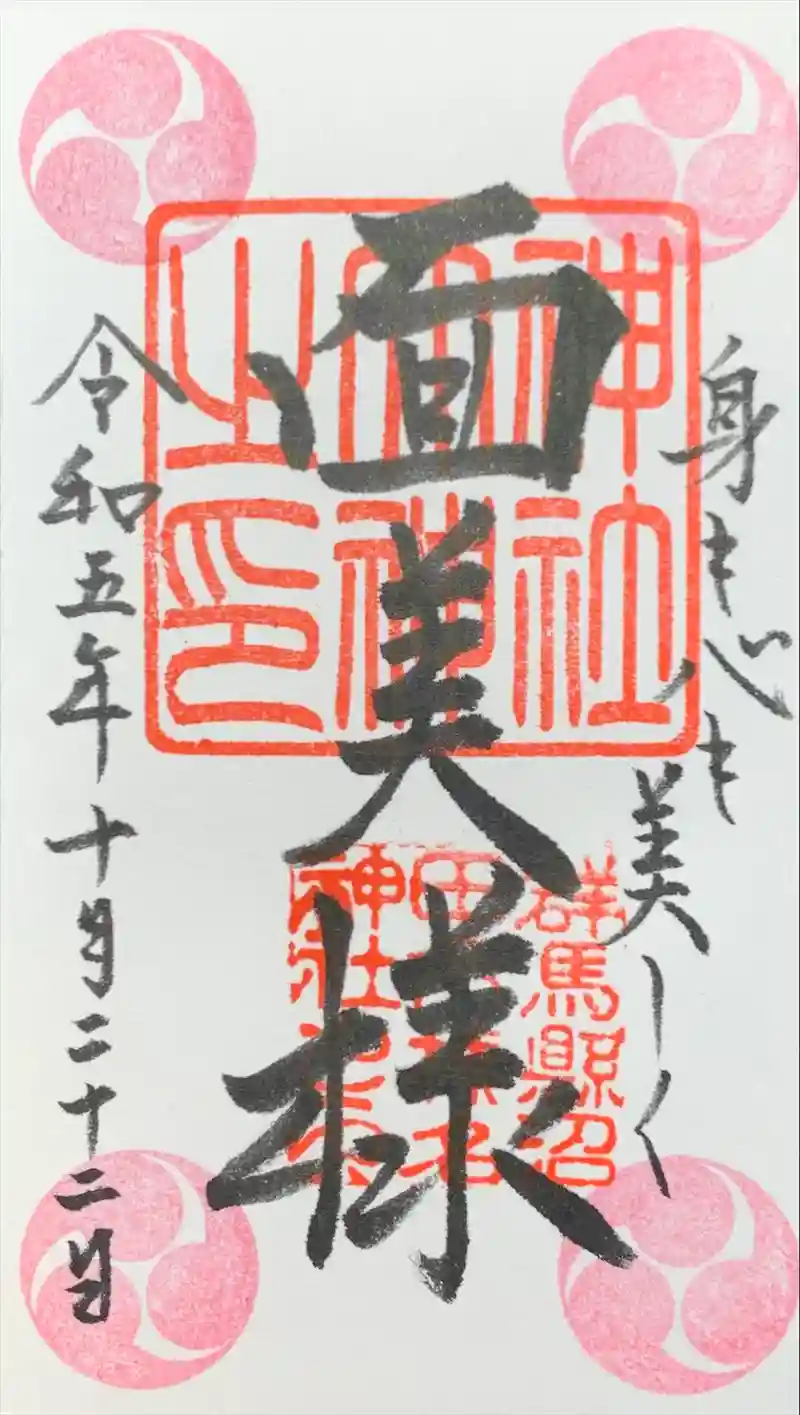 身も心も
美しく
面美様
令和五年十月二十二日
神社
之印
群馬縣沼
田 名
神社